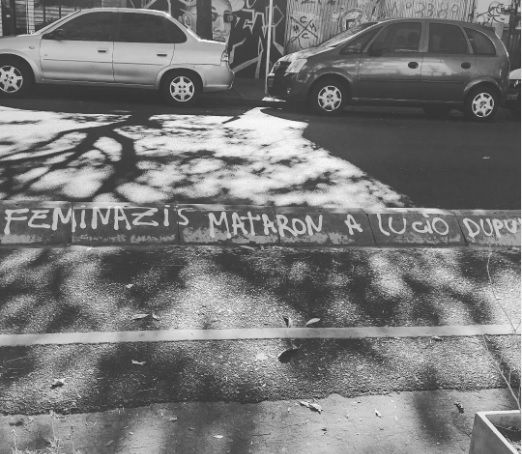 FEMINAZIS MATARON A LUCIO DUPU